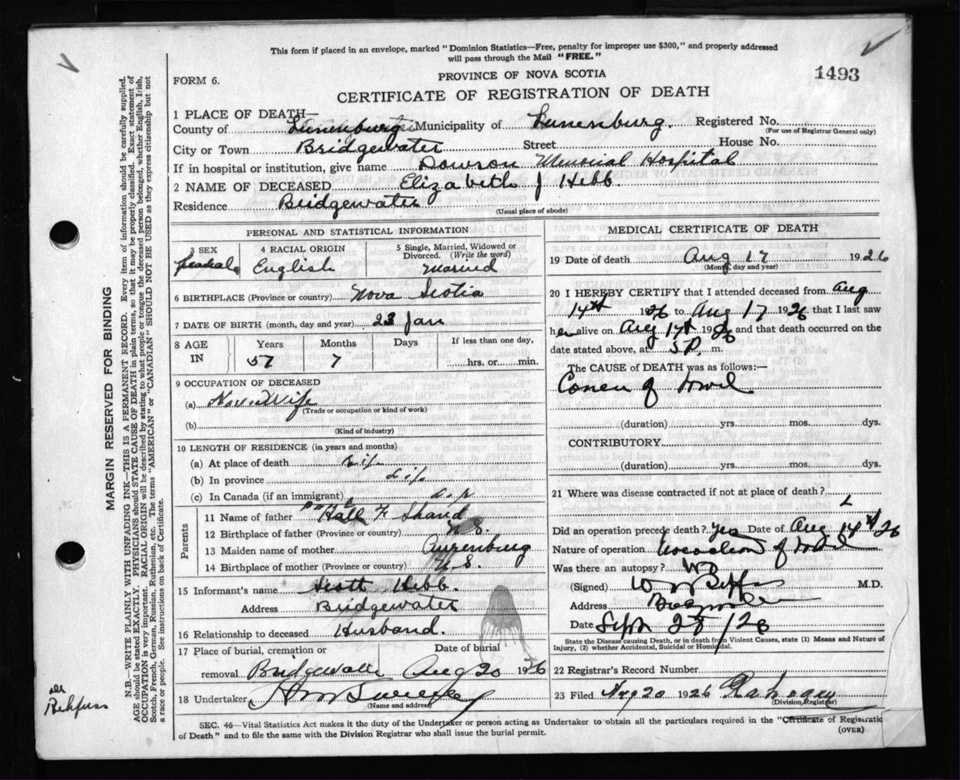 This form if placed in an envelope, marked "Dominion Statistics—Free, penalty for improper use $300," and properly addressed
will pass through the Mail "FREE."
FORM 6.
PROVINCE OF NOVA SCOTIA
1493
CERTIFICATE OF REGISTRATION OF DEATH
1 PLACE OF DEATH—
County of Lunenburg Municipality of Lunenburg. Registered No.
(For use of Registrar General only)
City or Town Bridgewater Street House No.
If in hospital or institution, give name Dawson Memorial Hospital
2 NAME OF DECEASED Elizabeth J Hebb.
Residence Bridgewater
(Usual place of abode)
PERSONAL AND STATISTICAL INFORMATION
3 SEX 4 RACIAL ORIGIN 5 Single, Married, Widowed or Divorced. (Write the word)
English Married
6 BIRTHPLACE (Province or country) Nova Scotia
7 DATE OF BIRTH (month, day and year) 23 Jan
8 AGE IN Years Months Days If less than one day,
57 7 hrs. or min.
9 OCCUPATION OF DECEASED
(a)
(Trade or occupation or kind of work)
(b)
(Kind of industry)
10 LENGTH OF RESIDENCE (in years and months)
(a) At place of death Life
(b) In province Life
(c) In Canada (if an immigrant)
Parents
11 Name of father
12 Birthplace of father (Province or country) N.S.
13 Maiden name of mother
14 Birthplace of mother (Province or country) N.S.
15 Informant's name Scott Hebb.
Address Bridgewater
16 Relationship to deceased Husband.
17 Place of burial, cremation or Date of burial
removal Bridgewater Aug 20 1926
18 Undertaker
(Name and address)
MEDICAL CERTIFICATE OF DEATH
19 Date of death Aug 17 1926
(Month, day and year)
20 I HEREBY CERTIFY that I attended deceased from Aug
14th 1926 to Aug 17 1926 that I last saw
her alive on Aug 17th 1926 and that death occurred on
date stated above, at 5 P. m.
The CAUSE OF DEATH was as follows:—
(duration) yrs. mos. dys.
CONTRIBUTORY
(duration) yrs. mos. dys.
21 Where was disease contracted if not at place of death?
Did an operation precede death? Yes Date of Aug 14th 26
Nature of operation
Was there an autopsy? No
(Signed) M.D.
Address
Date Sept
State the Disease causing Death, or in death from Violent Causes, state (1) Means and Nature of
Injury, (2) whether Accidental, Suicidal or Homicidal.
22 Registrar's Record Number
23 Filed Aug 20 1926
(Division Registrar)
SEC. 46—Vital Statistics Act makes it the duty of the Undertaker or person acting as Undertaker to obtain all the particulars required in the "Certificate of Registration
of Death" and to file the same with the Division Registrar who shall issue the burial permit.
(OVER)
MARGIN RESERVED FOR BINDING
N.B.—WRITE PLAINLY WITH UNFADING INK—THIS IS A PERMANENT RECORD. Every item of information should be carefully supplied.
AGE should be stated EXACTLY. PHYSICIANS should STATE CAUSE OF DEATH in plain terms, so that it may be properly classified. Exact statement of
OCCUPATION is very important. RACIAL ORIGIN will be described by stating to what people or tongue the deceased person belonged, whether English, Irish,
Scotch, French, German, Russian, Ruthenian, etc. The terms "AMERICAN" or "CANADIAN" SHOULD NOT BE USED as they express citizenship but not
a race or people. See instructions on back of Certificate.
Dr
Rehfuss